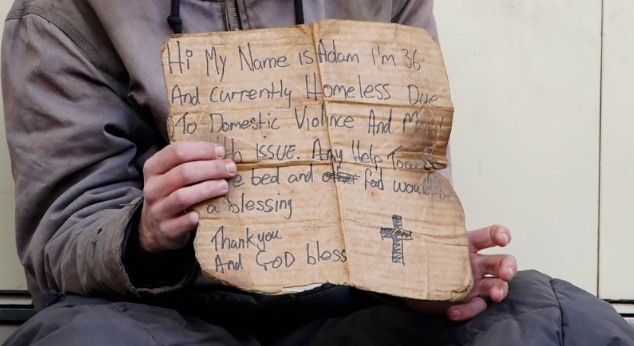 Hi My Name is Adam I'm 36
And Currently Homeless Due
To Domestic Violince And
ISSUE. Any Help
bed and food
a blessing
Thank you
And GOD bless